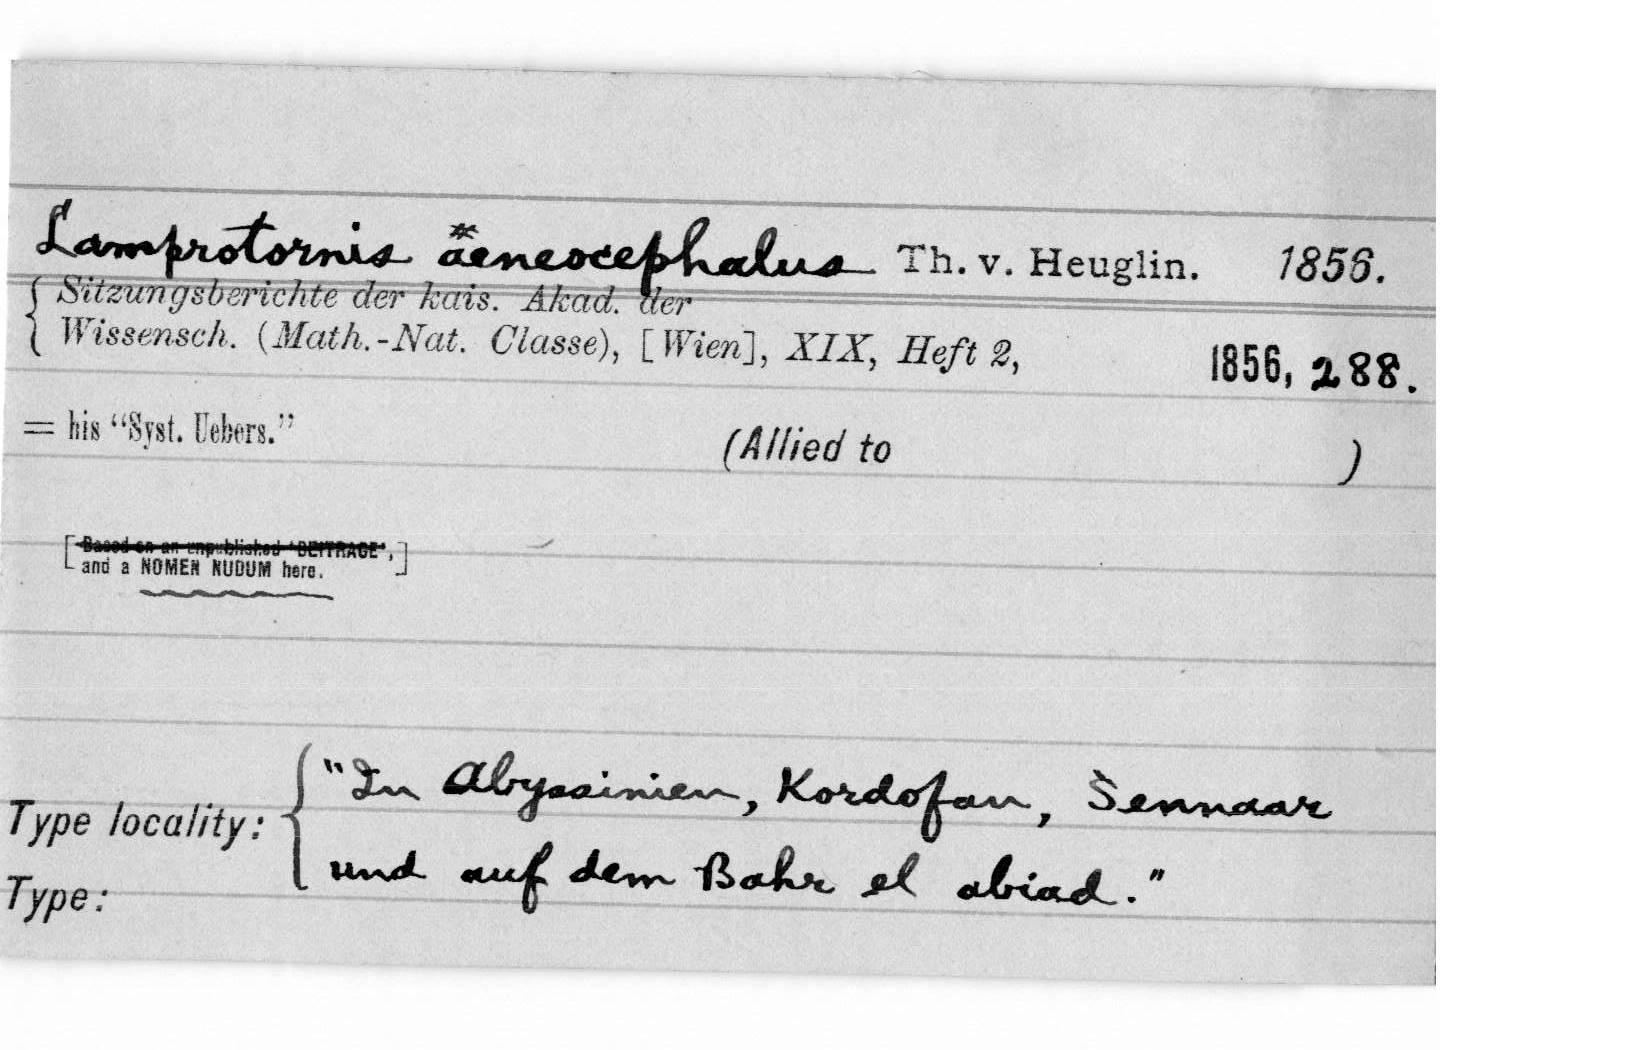 Lamprotornis äeneocephalus Th. v. Heuglin. 1856.
Sitzungsberichte der kais. Akad. der
Wissensch. (Math.-Nat. Classe), [Wien], XIX, Heft 2, 1856, 288.
= his “Syst. Uebers.”
(Allied to )
[Based on an unpublished ‘BEITRAGE’,
and a NOMEN NUDUM here.]
"In Abyssinien, Kordofan, Sennaar
Type locality:
und auf dem Bahr el abiad."
Type: